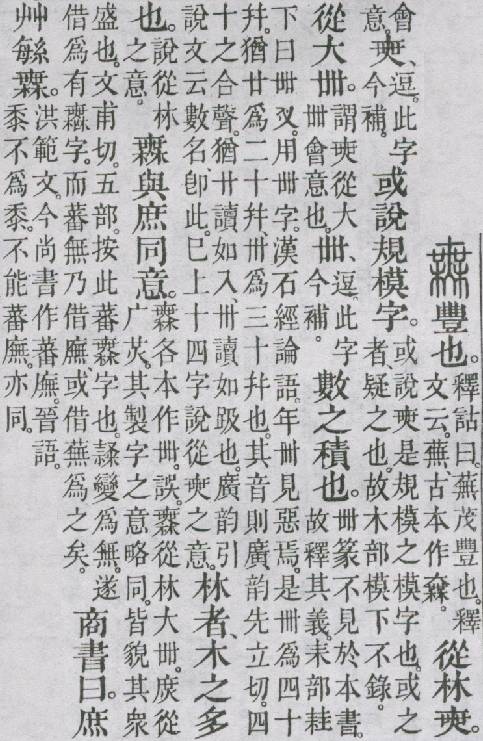 豐也。釋詁曰。蕪茂豐也。釋文云。蕪、古本作𣞤。從林𡘲。
會意。𡘲、逗。此字今補。或說規模字。或說𡘲是規模之模字也。或之者、疑之也。故木部模下不錄。
從大卌。謂𡘲從大卌、會意也。卌、逗。此字今補。數之積也。卌篆不見於本書。故釋其義。耒部𦓯
下曰卌叉。用卌字。漢石經論語。年卌見惡焉。是卌爲四十
幷。猶廿爲二十幷、卅爲三十幷也。其音則廣韵先立切。四
十之合聲。猶廿讀如入、卅讀如趿也。廣韵引
說文云數名。卽此。已上十四字說從𡘲之意。林者、木之多
也。說從林之意。𣞤與庶同意。𣞤各本作卌。誤。𣞤從林大卌。庶從广炗。其製字之意略同。皆貌其衆
盛也。文甫切。五部。按此蕃𣞤字也。𨽻變爲無。遂
借爲有𣠮字。而蕃無乃借廡、或借蕪爲之矣。商書曰。庶
艸緐𣞤。洪範文。今尚書作蕃廡。晉語。黍不爲黍。不能蕃廡。亦同。